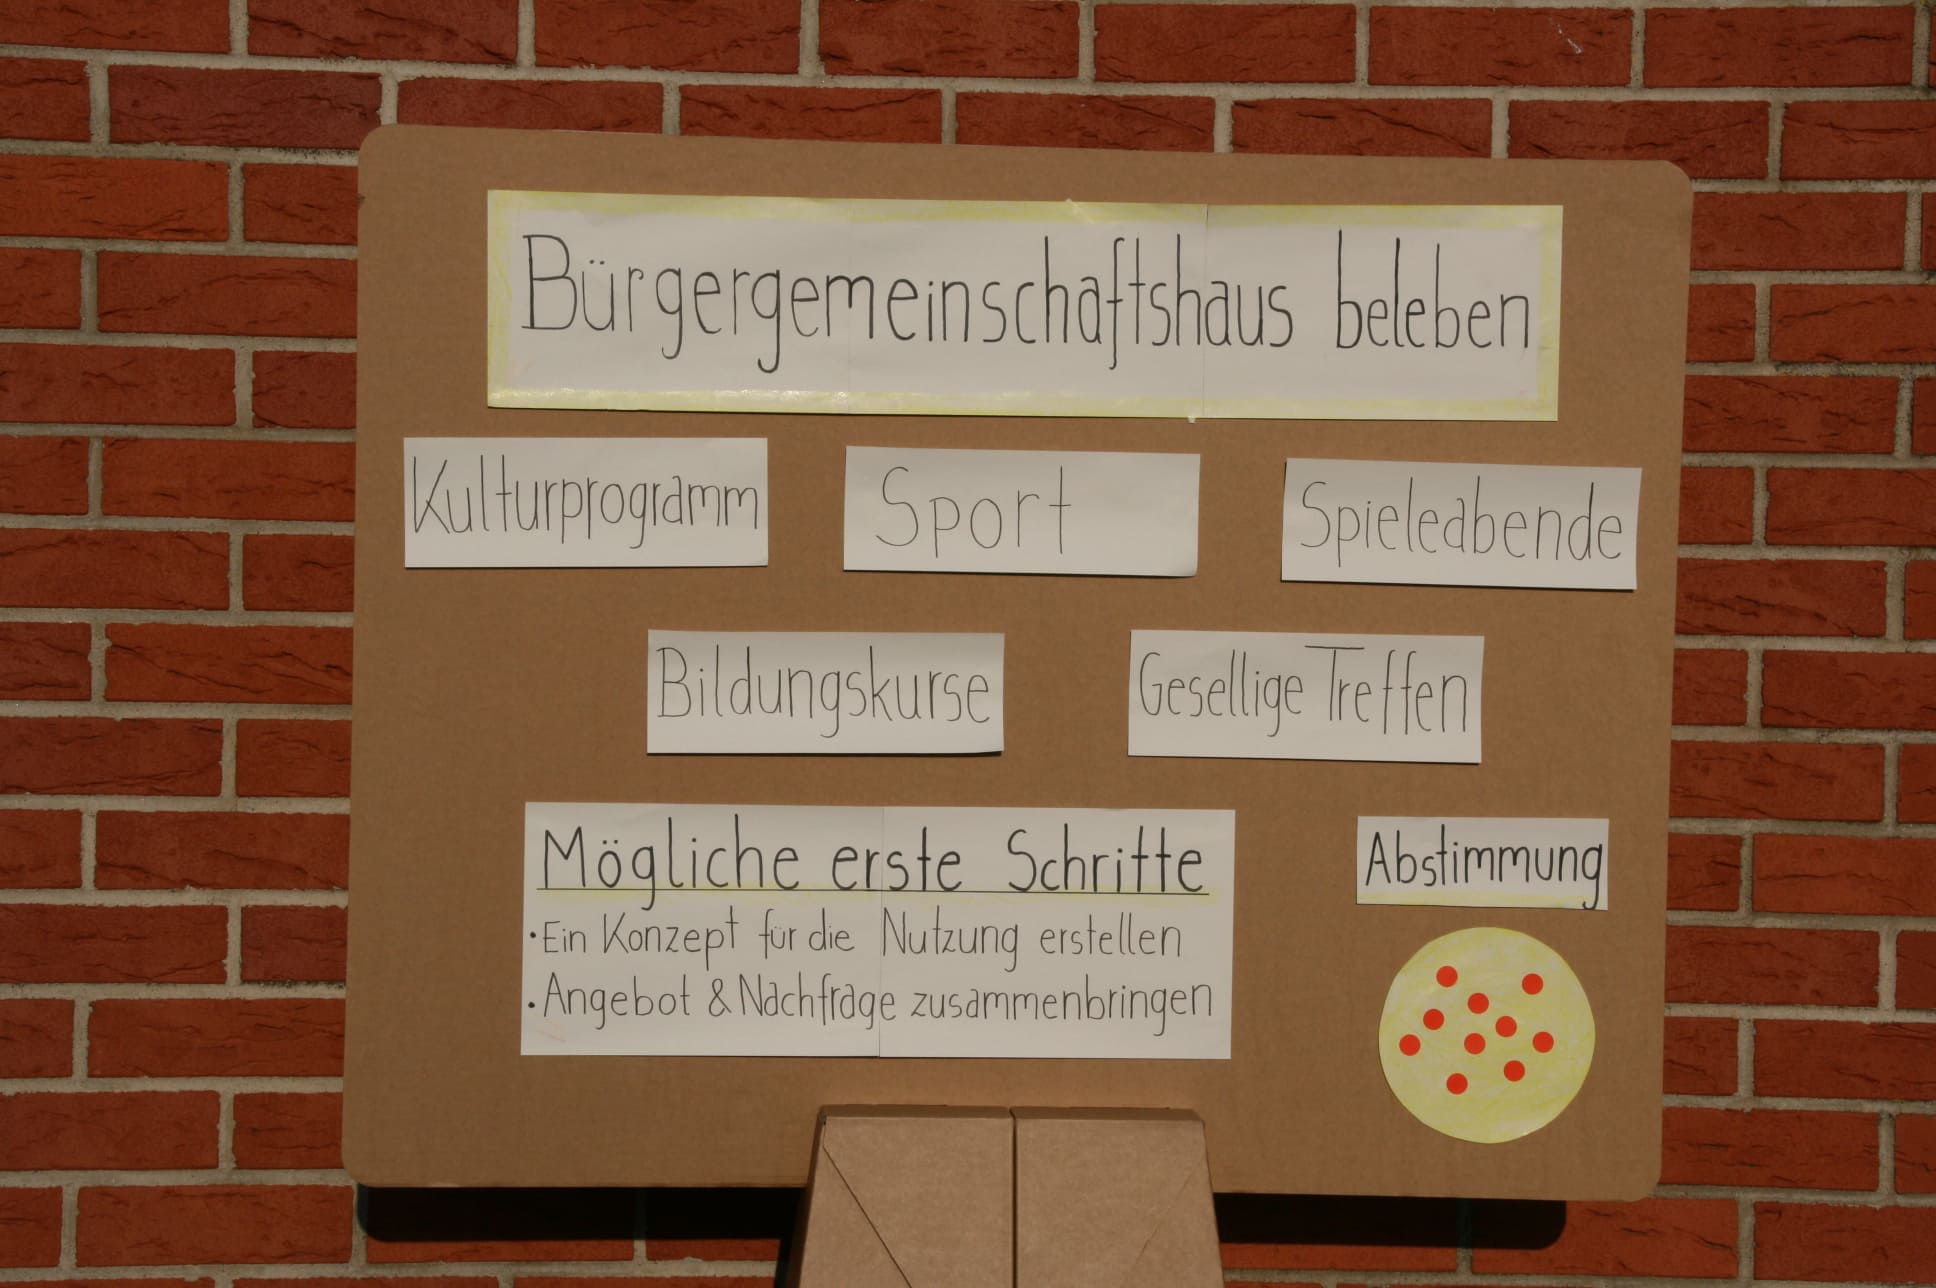 Bürgergemeinschaftshaus beleben
Kulturprogramm
Sport
Spieleabende
Bildungskurse
Gesellige Treffen
Mögliche erste Schritte
• Ein Konzept für die Nutzung erstellen
• Angebot & Nachfrage zusammenbringen
Abstimmung